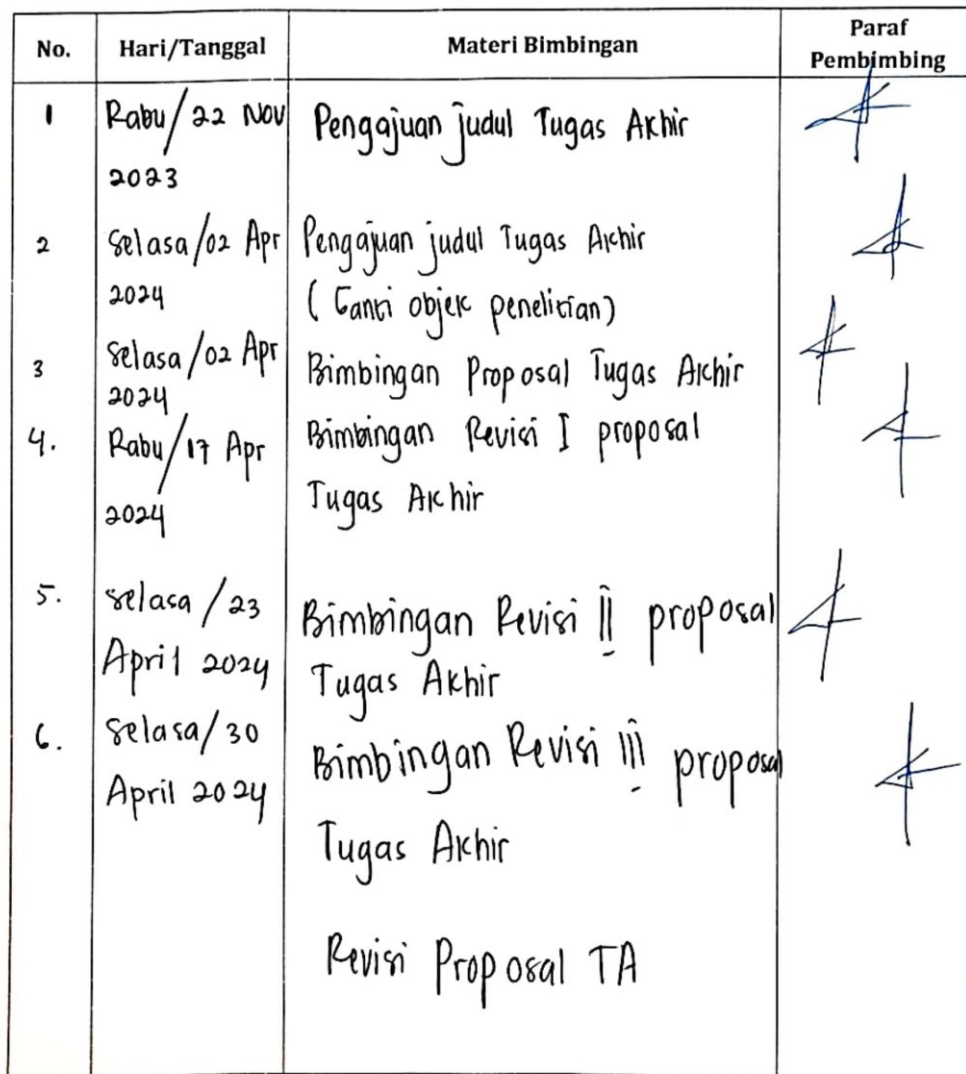 No. Hari/Tanggal Materi Bimbingan Paraf
Pembimbing
1 Rabu/22 Nov Pengajuan judul Tugas Akhir
2023
2 Selasa/02 Apr Pengajuan judul Tugas Akhir
2024 (Ganti objek penelitian)
3 Selasa/02 Apr Bimbingan Proposal Tugas Akhir
2024
4. Rabu/17 Apr Bimbingan Revisi I proposal
2024 Tugas Akhir
5. Selasa/23 Bimbingan Revisi II proposal
April 2024 Tugas Akhir
6. Selasa/30 Bimbingan Revisi III proposal
April 2024
Tugas Akhir
Revisi Proposal TA